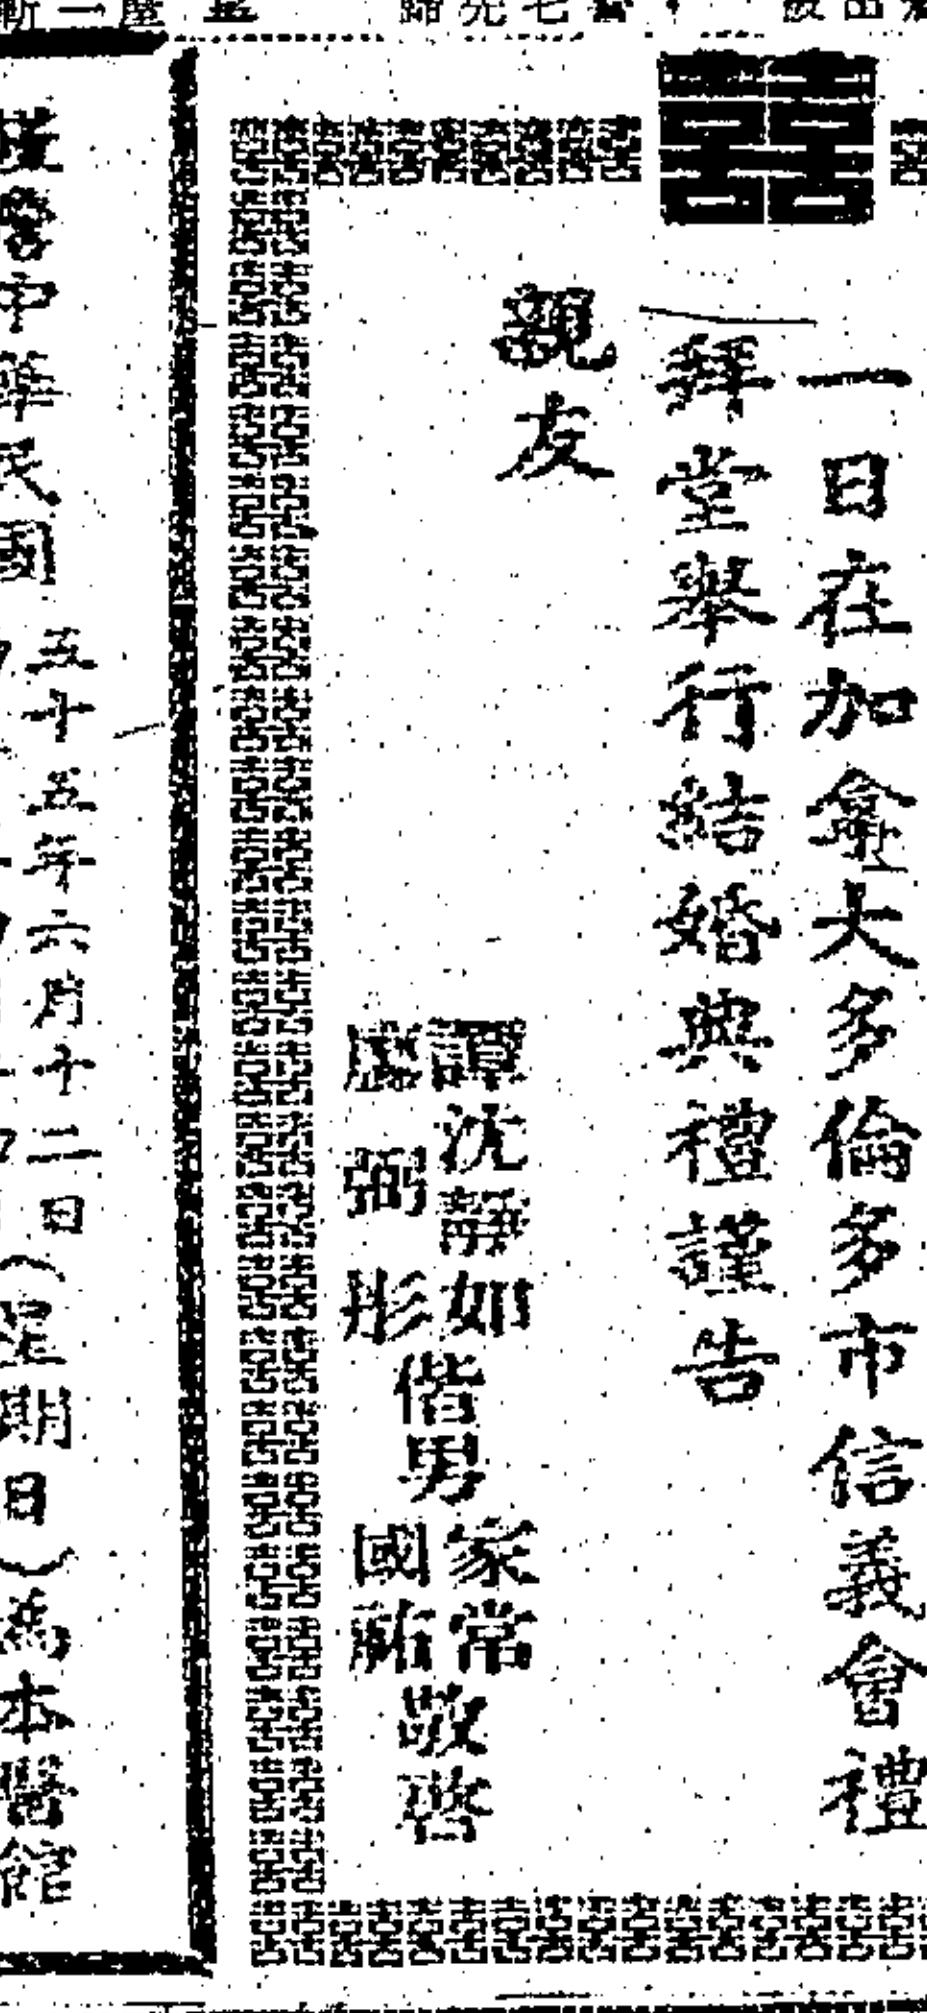 囍
一日在加拿大多倫多市信義會禮
拜堂舉行結婚典禮謹告
親友
譚沈靜如
弼彤
偕男
家常
國祐
敬啓
中華民國
五十五年六月十二日
(星期日)為本醫館